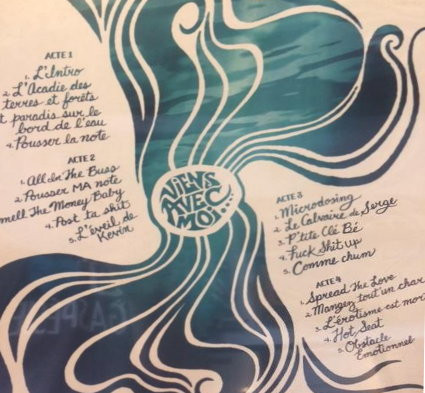 ACTE 1
1. L'Intro
2. L'Acadie des
terres et forêts
et paradis sur le
bord de l'eau
4. Pousser la note
ACTE 2
1. All In The Buss
2. Pousser MA note
Smell The Money Baby
4. Post ta shit
5. L'éveil de
Kevin
VIENS
AVEC
MOI...
ACTE 3
1. Microdosing
2. Le Calvaire de Serge
3. P'tite Clé Bé
4. Fuck Shit up
5. Comme chum
ACTE 4
1. Spread The Love
2. Mangez tout un char
3. L'érotisme est mort
4. Hot Seat
5. Obstacle
Émotionnel